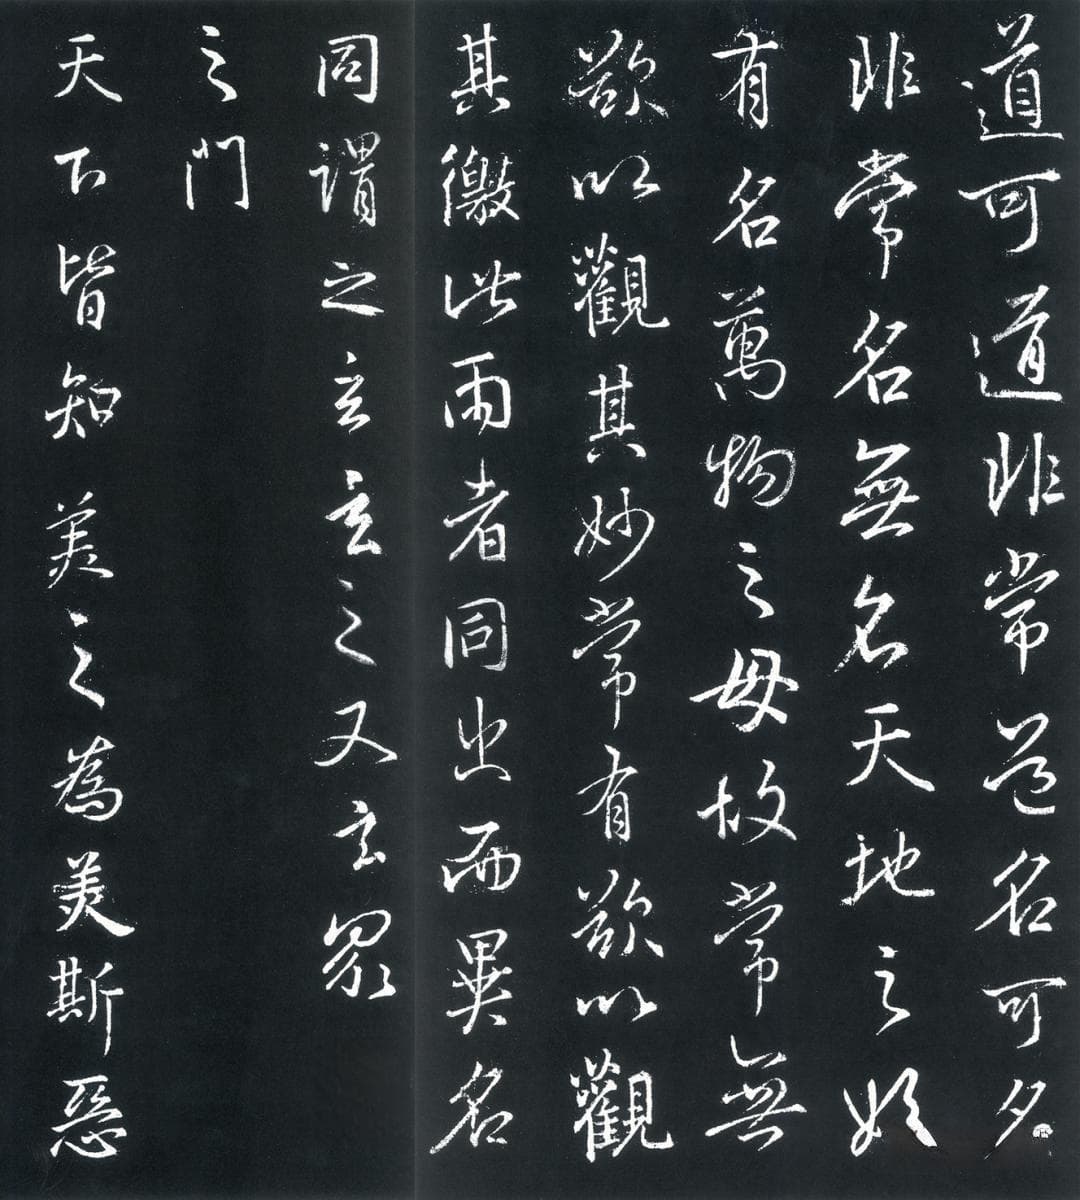 道可道非常道名可名
非常名無名天地之始
有名萬物之母故常無
欲以觀其妙常有欲以觀
其徼此兩者同出而異名
同謂之玄玄之又玄眾
之門
天下皆知美之為美斯惡